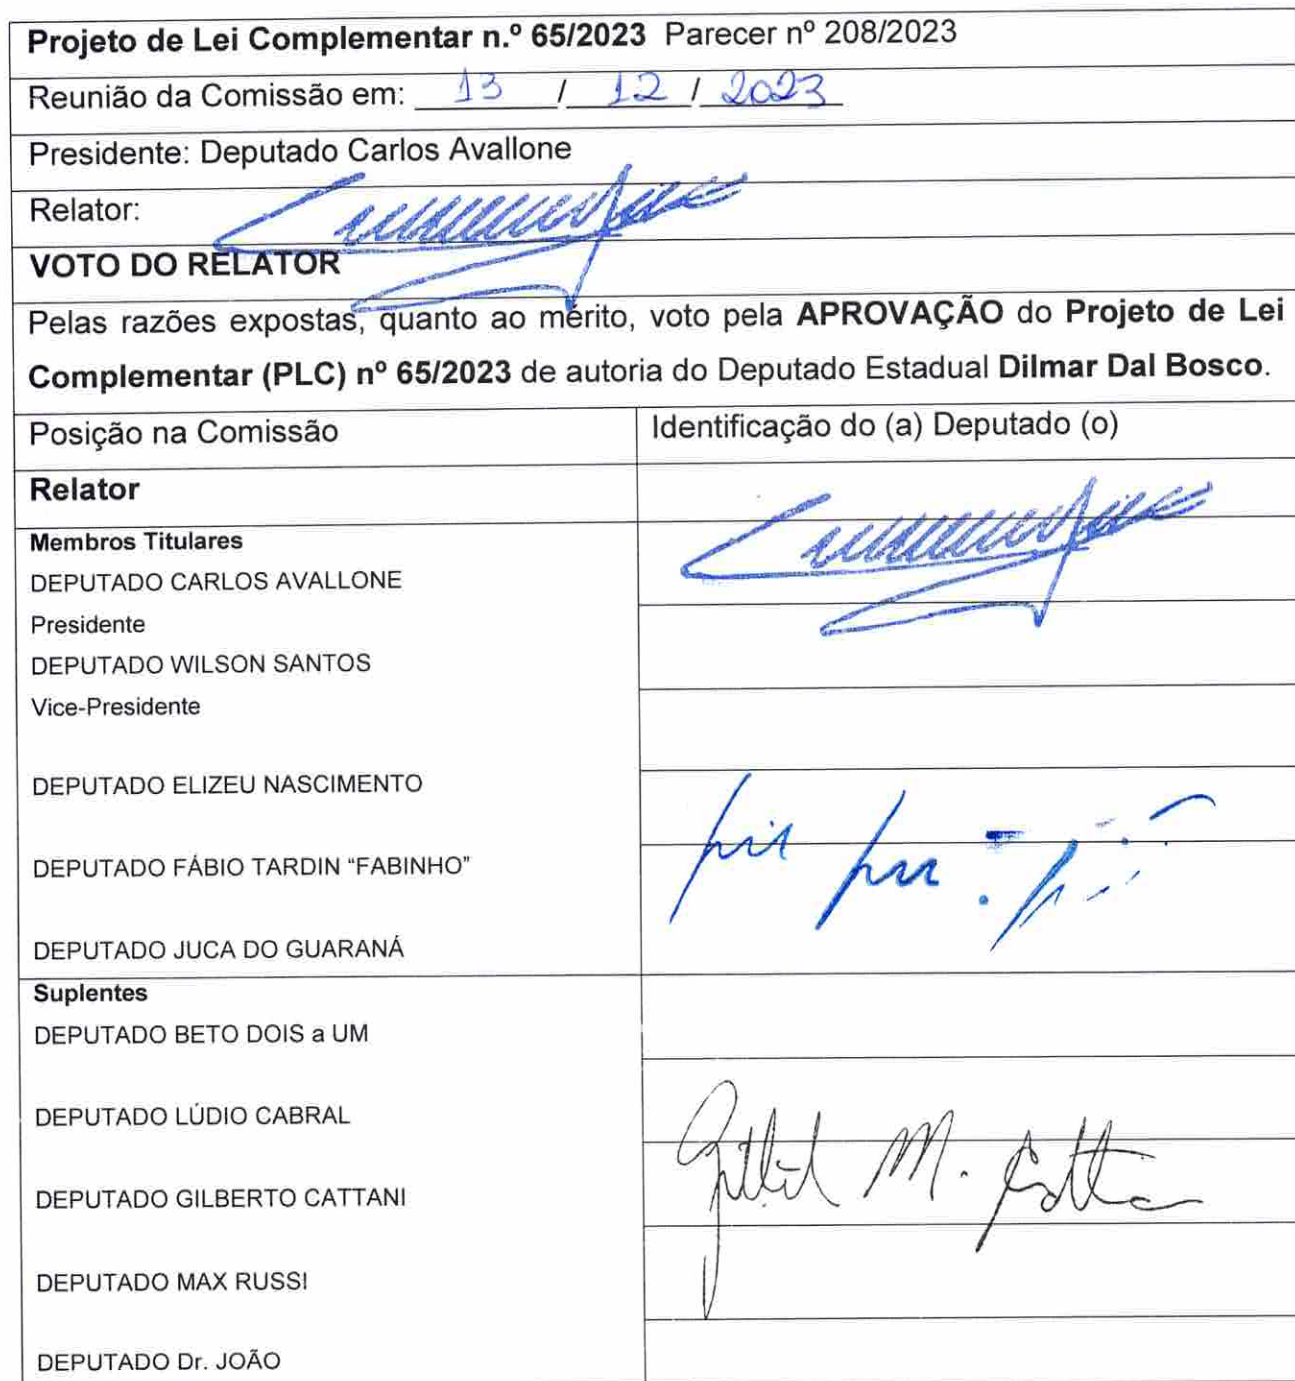 Projeto de Lei Complementar n.º 65/2023 Parecer nº 208/2023
Reunião da Comissão em: 13 / 12 / 2023
Presidente: Deputado Carlos Avallone
Relator:
VOTO DO RELATOR
Pelas razões expostas, quanto ao mérito, voto pela APROVAÇÃO do Projeto de Lei
Complementar (PLC) nº 65/2023 de autoria do Deputado Estadual Dilmar Dal Bosco.
Posição na Comissão Identificação do (a) Deputado (o)
Relator
Membros Titulares
DEPUTADO CARLOS AVALLONE
Presidente
DEPUTADO WILSON SANTOS
Vice-Presidente
DEPUTADO ELIZEU NASCIMENTO
DEPUTADO FÁBIO TARDIN “FABINHO”
DEPUTADO JUCA DO GUARANÁ
Suplentes
DEPUTADO BETO DOIS a UM
DEPUTADO LÚDIO CABRAL
DEPUTADO GILBERTO CATTANI
DEPUTADO MAX RUSSI
DEPUTADO Dr. JOÃO